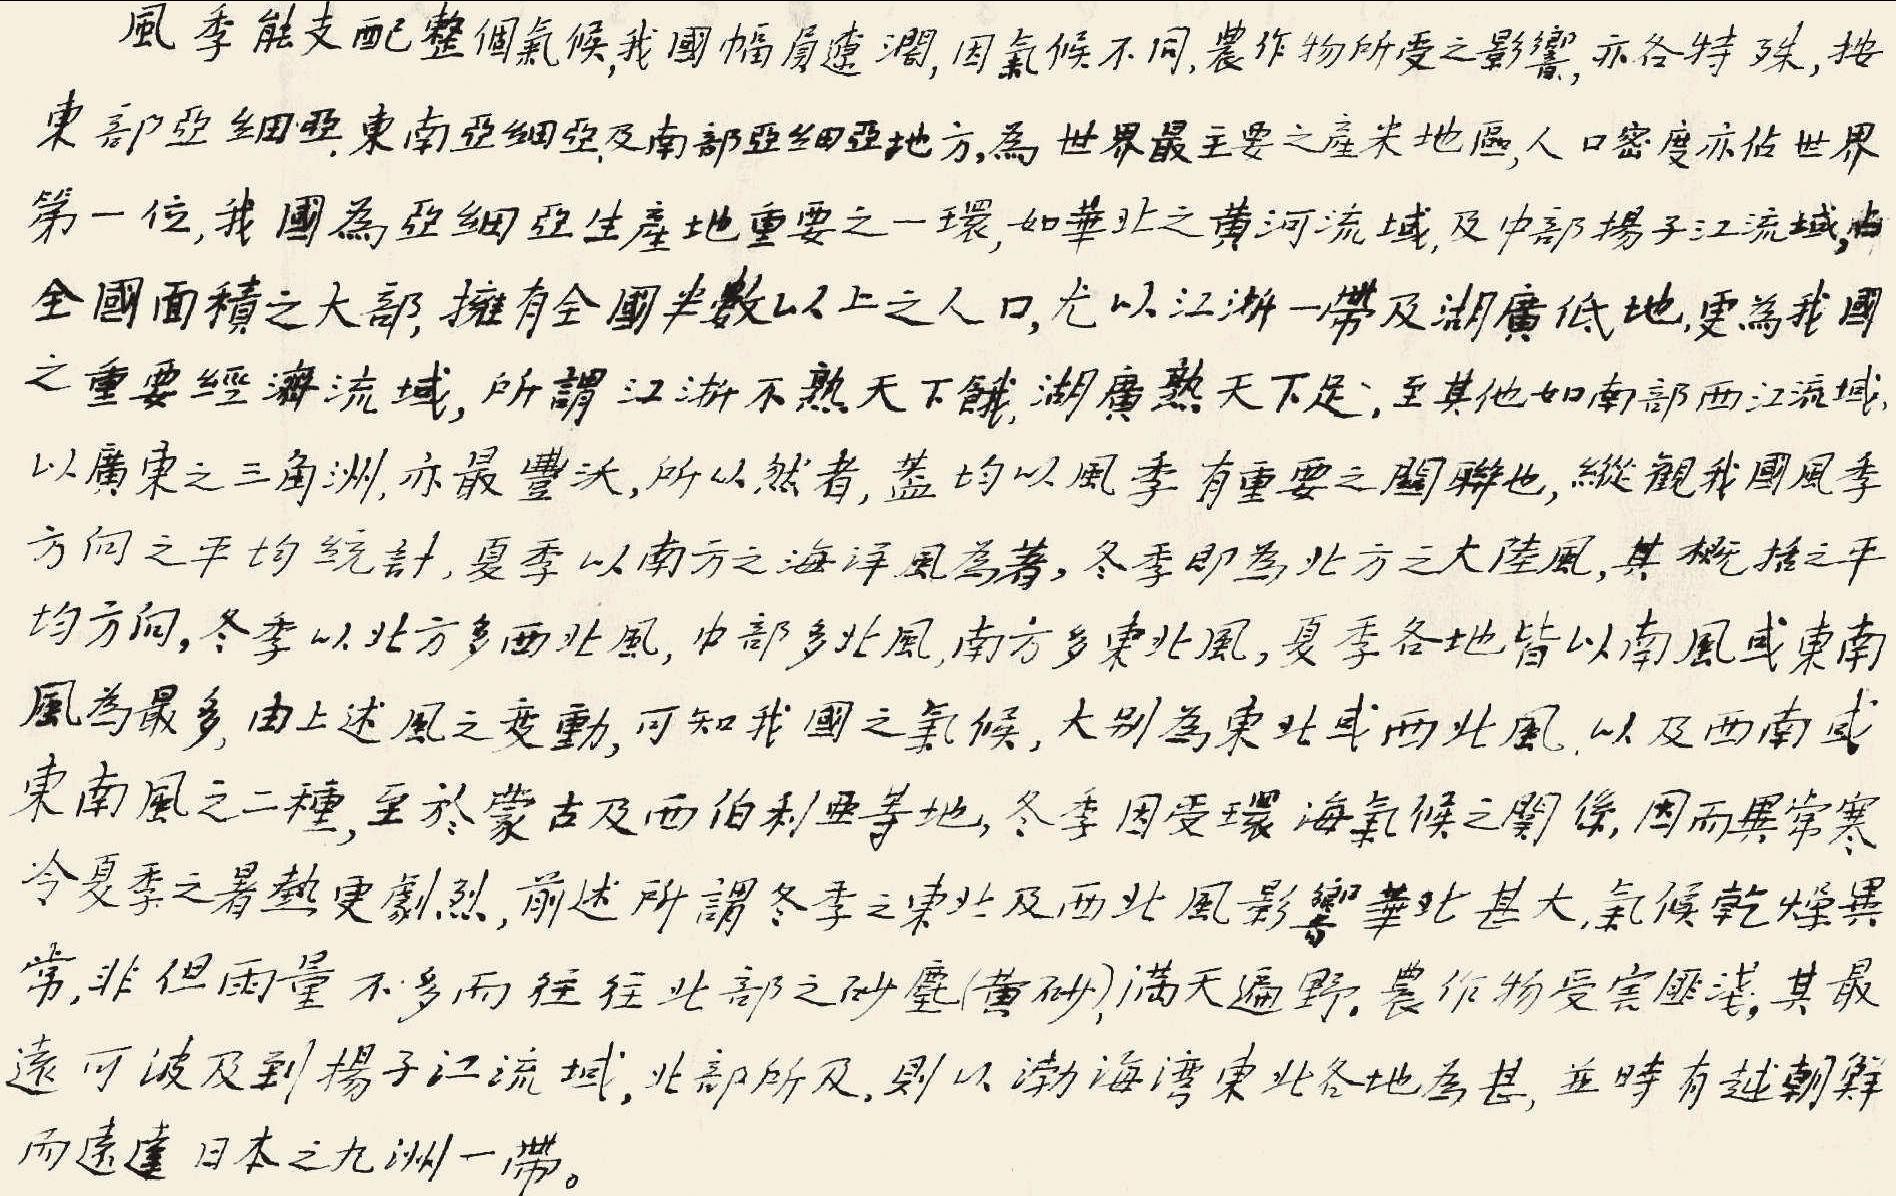 風季能支配整個氣候,我國幅員遼濶,因氣候不同,農作物所受之影響,亦各特殊,按
東部亞細亞.東南亞細亞,及南部亞細亞地方,為世界最主要之產米地區,人口密度亦佔世界
第一位,我國為亞細亞生產地重要之一環,如華北之黃河流域,及中部揚子江流域,占
全國面積之大部,擁有全國半數以上之人口,尤以江浙一帶及湖廣低地,更為我國
之重要經濟流域,所謂江浙不熟天下餓,湖廣熟天下足、,至其他如南部西江流域、
以廣東之三角洲,亦最豐沃,所以然者,蓋均以風季有重要之關聯也,縱觀我國風季
方向之平均統計,夏季以南方之海洋風為著,冬季即為北方之大陸風,其概括之平
均方向,冬季以北方多西北風,中部多北風,南方多東北風,夏季各地皆以南風或東南
風為最多,由上述風之变動,可知我國之氣候,大別為東北或西北風,以及西南或
東南風之二種,至於蒙古及西伯利亞等地,冬季因受環海氣候之関係,因而異常寒
冷夏季之暑熱更劇烈,前述所謂冬季之東北及西北風影響華北甚大,氣候乾燥異
常,非但雨量不多而往往北部之砂塵(黃砂),滿天遍野.農作物受害匪淺,其最
遠可波及到揚子江流域,北部所及,則以渤海湾東北各地為甚,並時有越朝鮮
而遠達日本之九洲一帶。